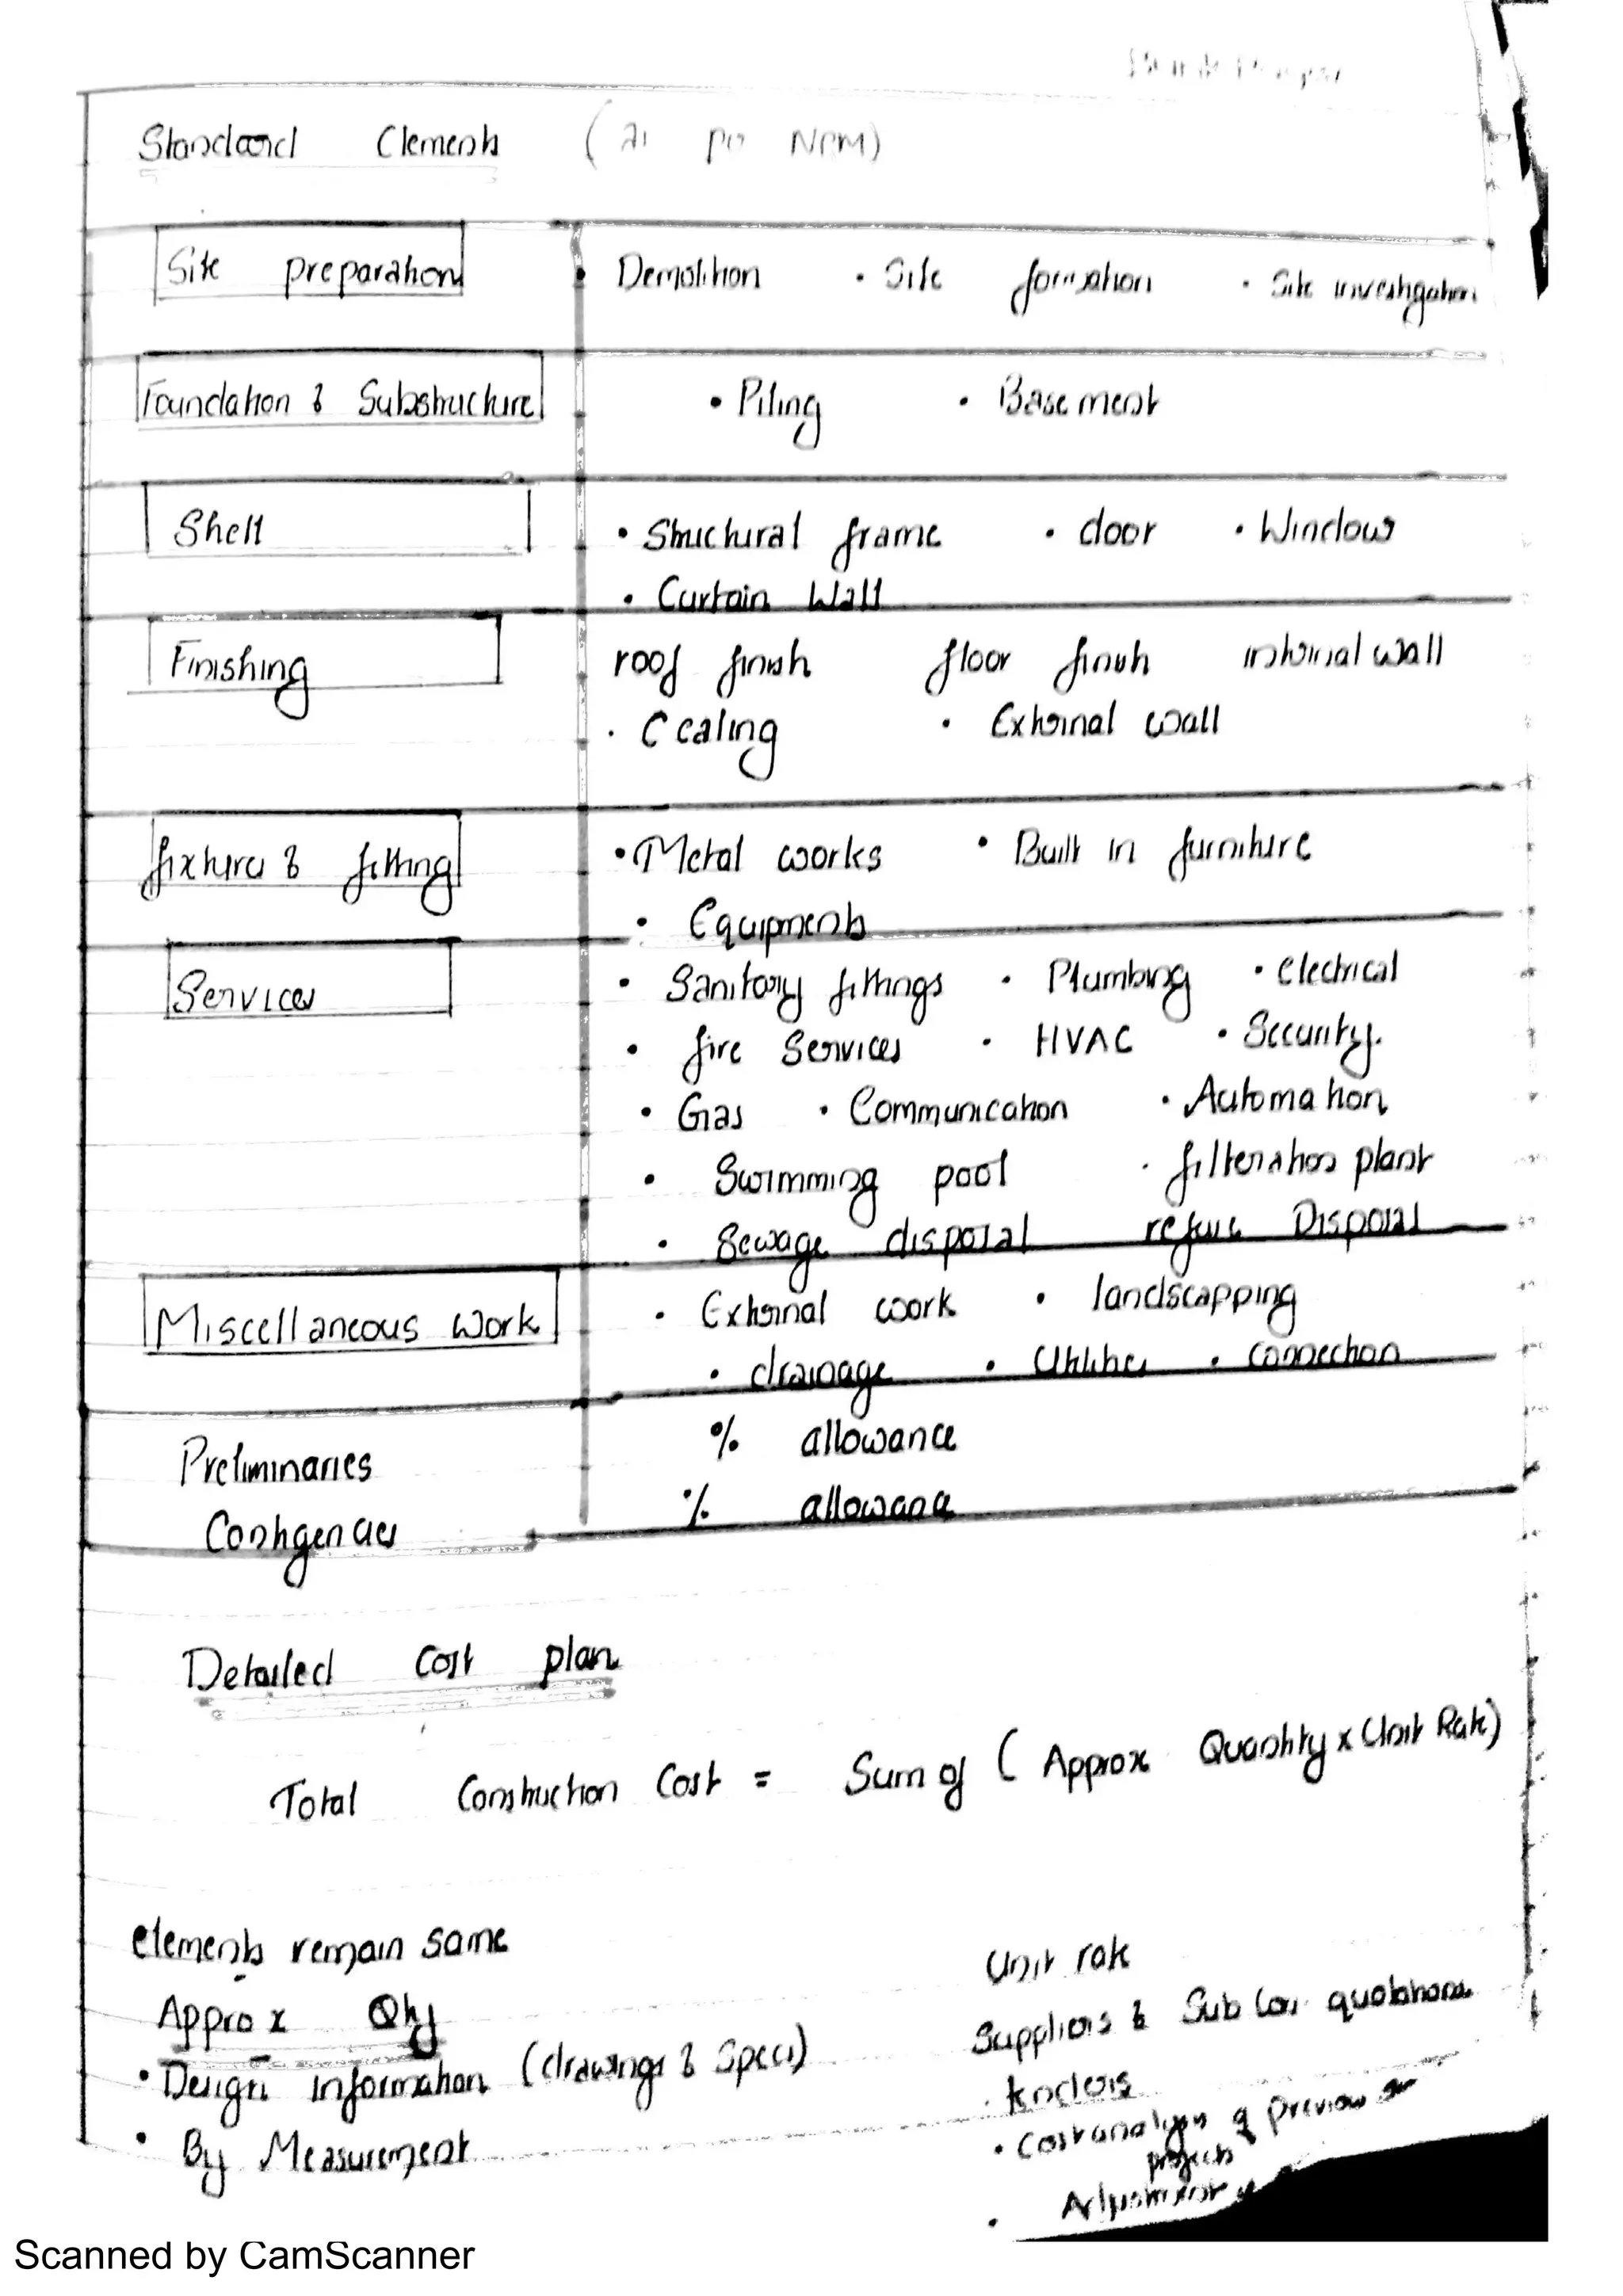 Standard Elements (as per NRM)
Site preparation
• Demolition • Site formation • Site investigation
Foundation & Substructure
• Piling • Basement
Shell
• Structural frame • door • Window
• Curtain Wall
Finishing
roof finish floor finish internal wall
• Ceealing • External wall
fixtures & fitting
• Metal works • Built in furniture
• Equipments
Services
• Sanitory fittings • Plumbing • Electrical
• fire Services • HVAC • Security.
• Gas • Communication • Automation
• Swimming pool • filteration plant
• Sewage disposal refuse Disposal
Miscellaneous Work
• External work • landscapping
• drainage • Utilities • connection
Preliminaries % allowance
Contigencies % allowance
Detailed Cost plan
Total Construction Cost = Sum of ( Approx Quantity x Unit Rate)
elements remain same
Approx Qty
• Design information (drawings & Specs)
• By Measurement
Unit rate
Suppliers & Sub Con quotations
• tenders
• Cost analysis of previous
projects
• Adjustment
Scanned by CamScanner